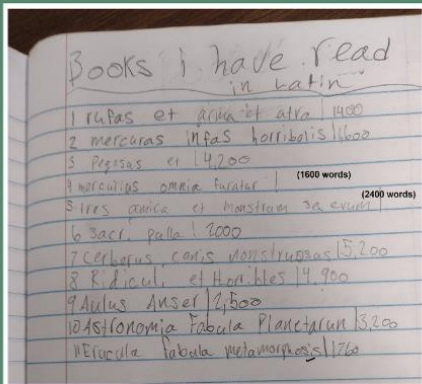 Books i have read
in Latin
1 rufas et arma et atra | 1400
2 mercuras infas horribolis | 1600
3 Pegasas et | 4,200
4 mercurius omnia furatur | (1600 words)
5 tres amica et monstrum saevum | (2400 words)
6 Sacri pulli | 2000
7 cerberus canis monstruosas | 5,200
8 Ridiculi et Horribles | 4,900
9 Aulus Anser | 2,500
10 Astronomia Fabula Planetarun | 3,200
11 Erucula fabula metamorphosis | 1760